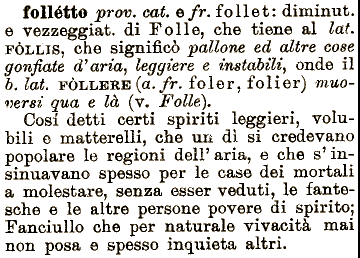 follétto prov. cat. e fr. follet: diminut.
e vezzeggiat. di Folle, che tiene al lat.
FÒLLIS, che significò pallone ed altre cose
gonfiate d'aria, leggiere e instabili, onde il
b. lat. FÒLLERE (a. fr. foler, folier) muo-
versi qua e là (v. Folle).
Così detti certi spiriti leggieri, volu-
bili e matterelli, che un dì si credevano
popolare le regioni dell'aria, e che s'in-
sinuavano spesso per le case dei mortali
a molestare, senza esser veduti, le fante-
sche e le altre persone povere di spirito;
Fanciullo che per naturale vivacità mai
non posa e spesso inquieta altri.